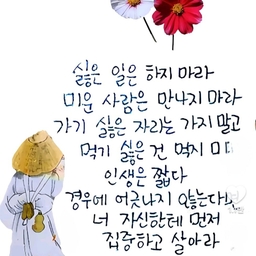 싫은 일은 하지마라
미운 사람은 만나지 마라
가기 싫은 자리는 가지 말고
먹기 싫은 건 먹지 마
인생은 짧다
경우에 어긋나지 않는다
너 자신한테 먼저
집중하고 살아라